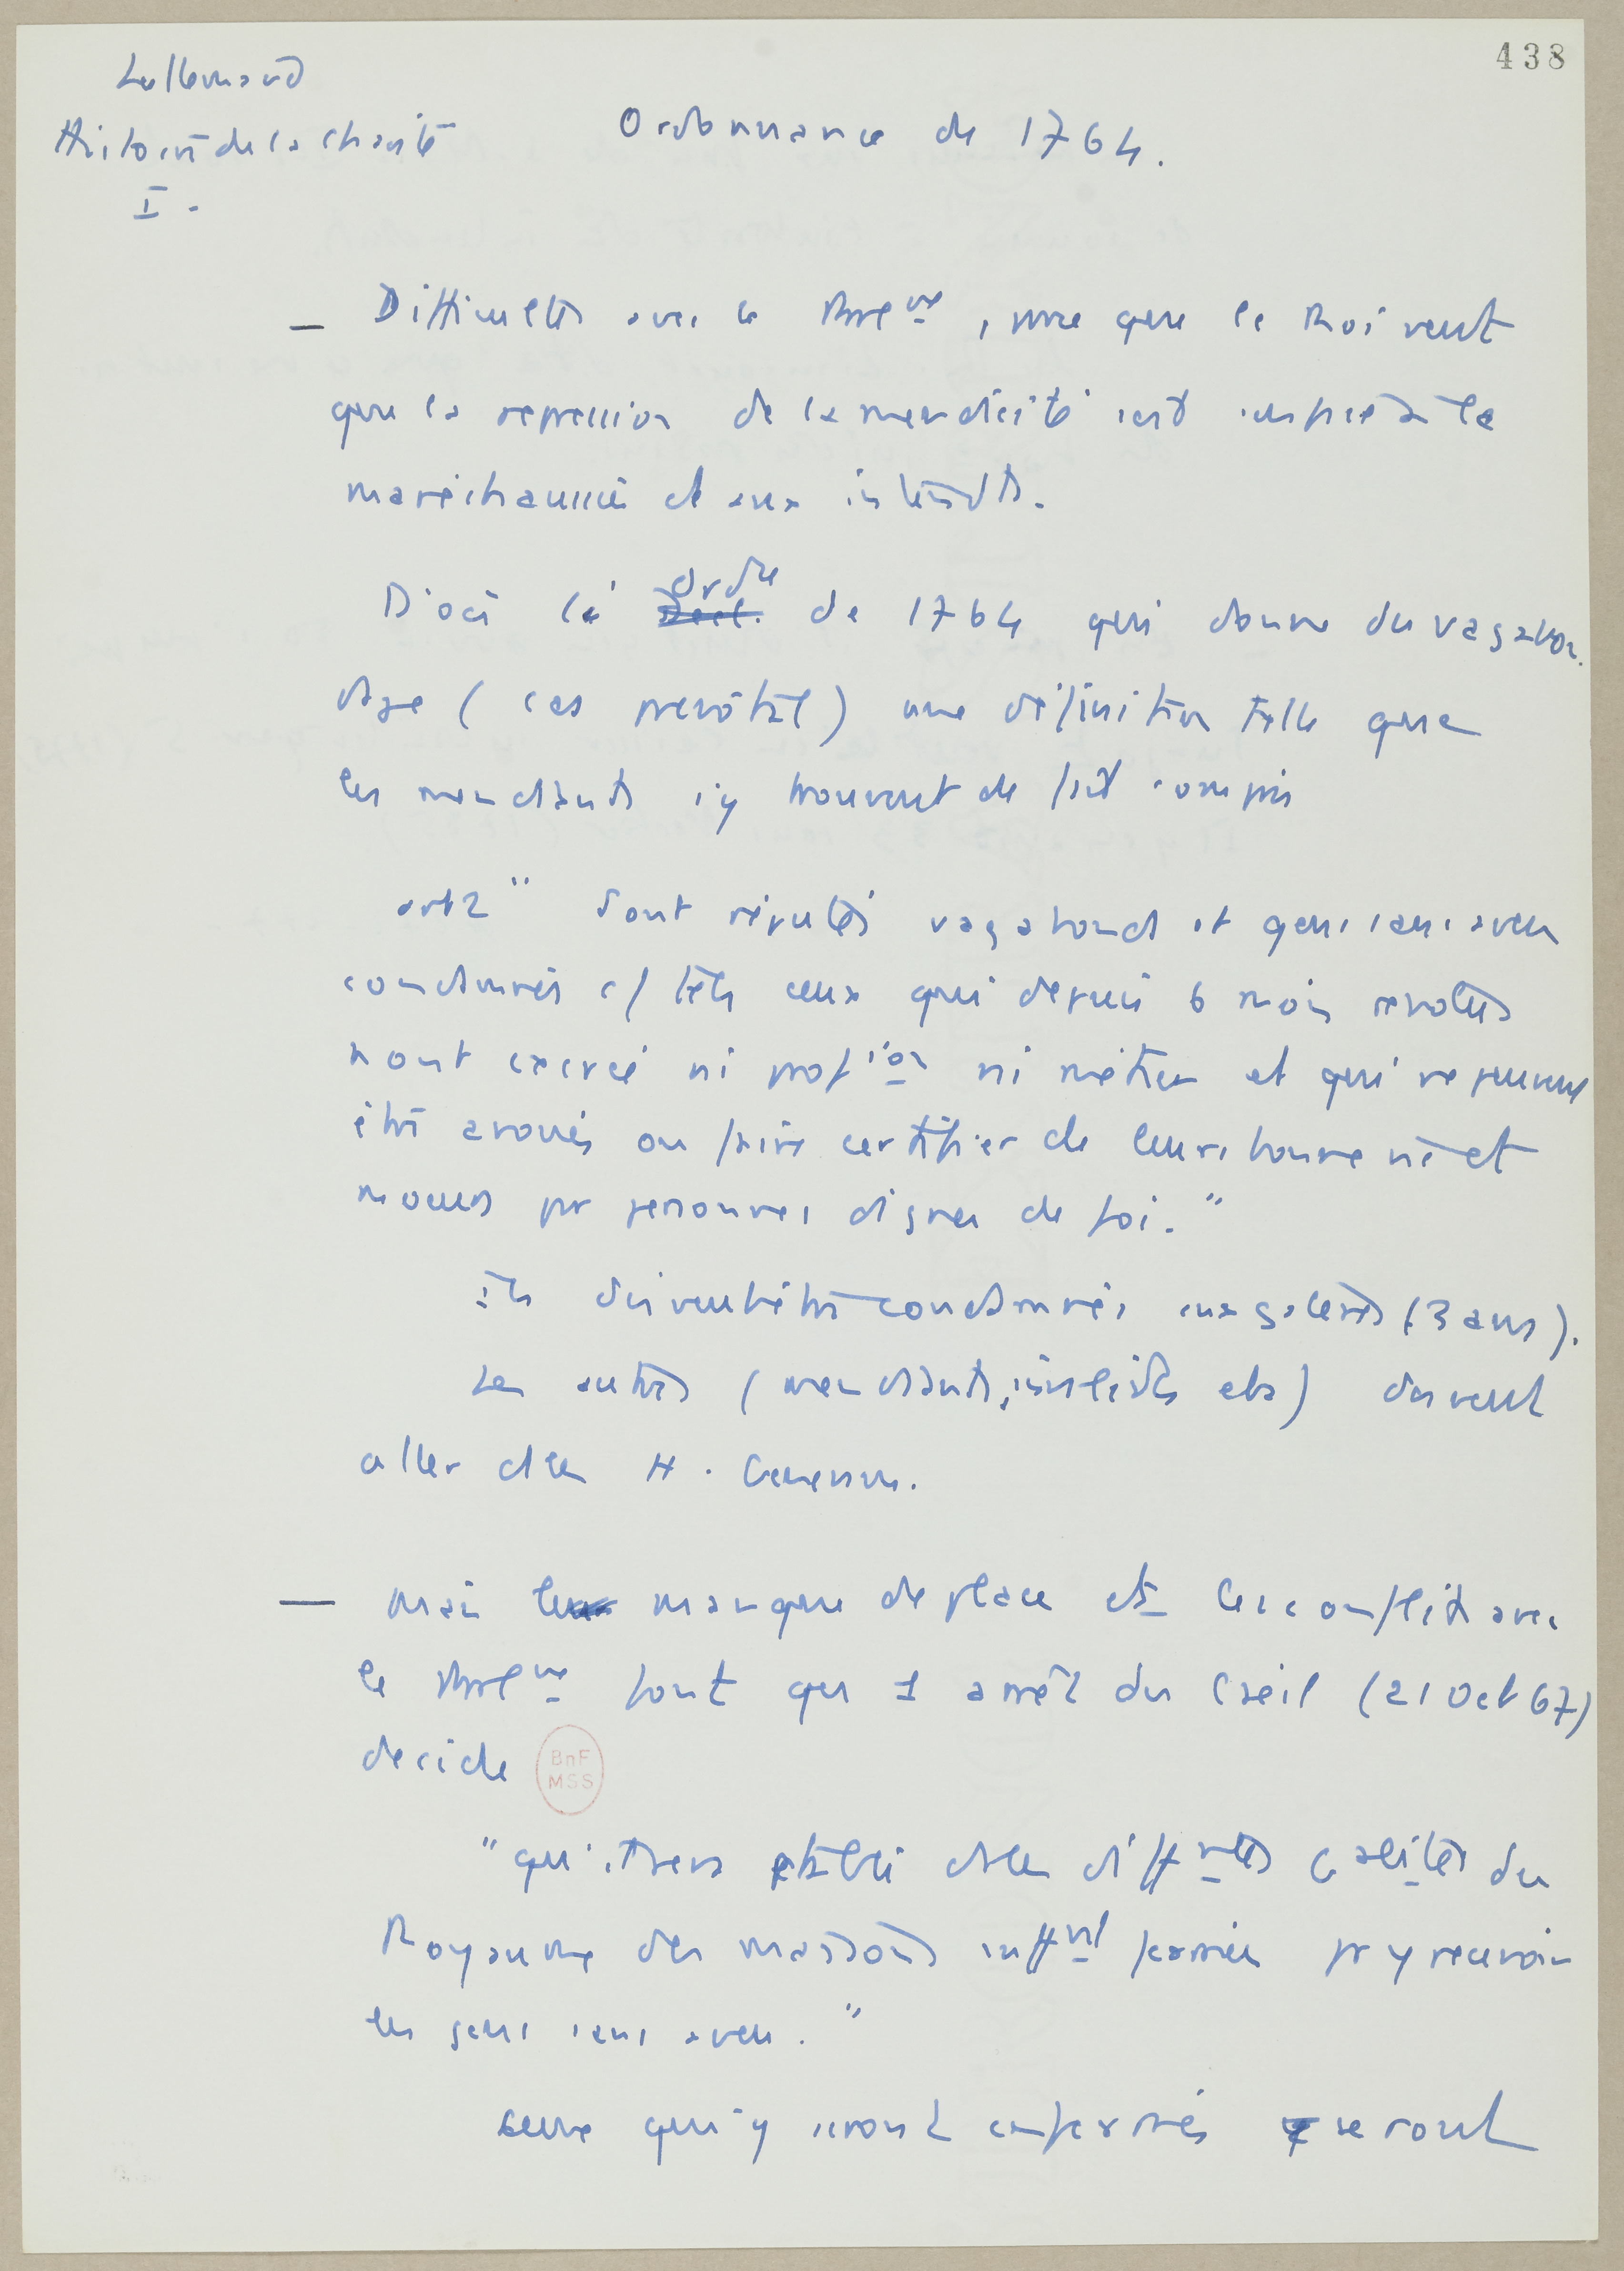 438
Lallemand
Histoire de la charité
I.
Ordonnance de 1764.
— Difficultés avec le Parl<sup>nt</sup>, parce que le Roi veut
que la repression de la mendicité soit confiée à la
maréchaussée et aux intendts.
D'où l' ordce ~~Decl.~~ de 1764 qui donne du vagabon-
dage (cas prevôtal) une définition telle que
les mendiants s'y trouvent de fait compris
art 2 " Sont réputés vagabonds et gens sans aveu
condamnés c/ tels ceux qui depuis 6 mois revolus
n'ont exercé ni prof<sup>ion</sup> ni métier et qui ne peuvent
être avoués ou faire certifier de leurs bonne vie et
moeurs par personnes dignes de foi. "
Ils doivent être condamnés aux galères (3 ans).
Les autres (mendiants, invalides etc) doivent
aller ds les H.
— Mais le manque de place et les conflits avec
le Parl<sup>nt</sup> font que 1 arrêt du Cseil (21 Oct 67)
decide
BnF
MSS
" qu'il sera établi ds les diff<sup>ntes</sup> Gralités du
Royaume des maisons suff<sup>nt</sup> fermées pr y recevoir
les gens sans aveu. "
ceux qui y seront enfermés y seront